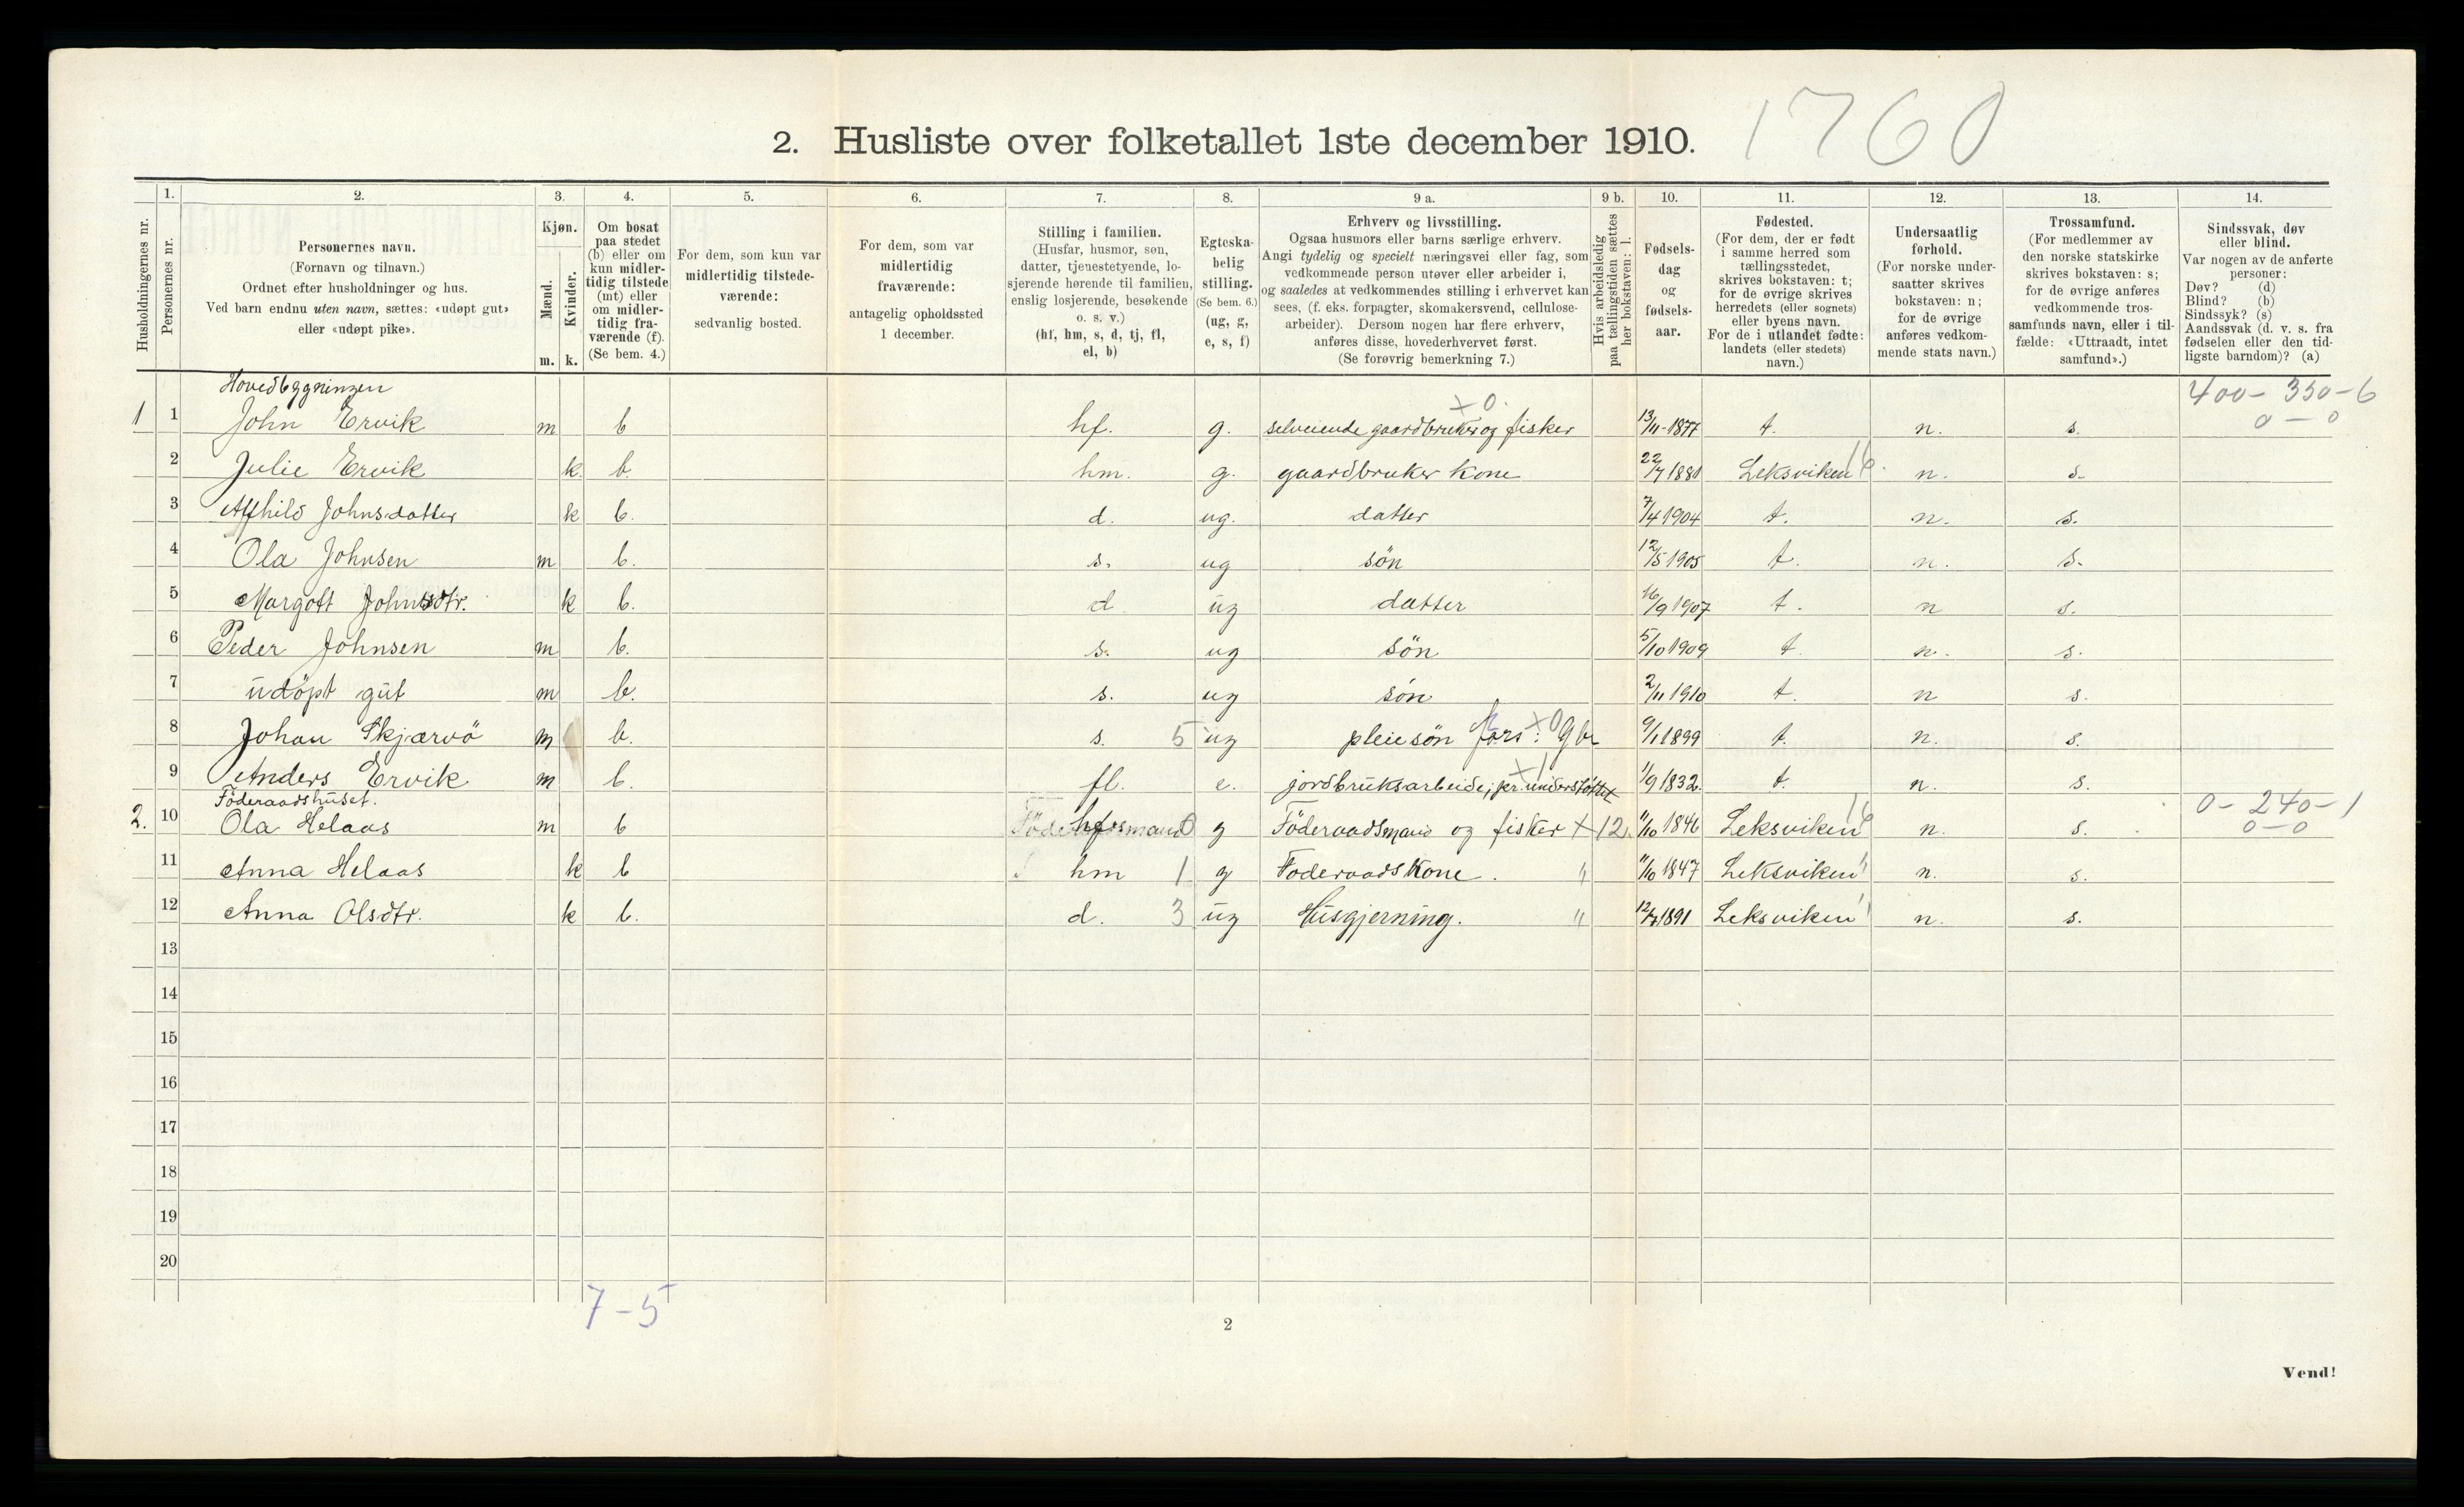 1760
2. Husliste over folketallet 1ste december 1910.
Husholdningernes nr.
1.
Personernes nr.
2.
Personernes navn.
(Fornavn og tilnavn.)
Ordnet efter husholdninger og hus.
Ved barn endnu uten navn, sættes: «udøpt gut»
eller «udøpt pike».
3.
Kjøn.
Mænd.
Kvinder.
m. k.
4.
Om bosat
paa stedet
(b) eller om
kun midler-
tidig tilstede
(mt) eller
om midler-
tidig fra-
værende (f).
(Se bem. 4.)
5.
For dem, som kun var
midlertidig tilstede-
værende:
sedvanlig bosted.
6.
For dem, som var
midlertidig
fraværende:
antagelig opholdssted
1 december.
7.
Stilling i familien.
(Husfar, husmor, søn,
datter, tjenestetyende, lo-
sjerende hørende til familien,
enslig losjerende, besøkende
o. s. v.)
(hf, hm, s, d, tj, fl,
el, b)
8.
Egteska-
belig
stilling.
(Se bem. 6.)
(ug, g,
e, s, f)
9 a.
Erhverv og livsstilling.
Ogsaa husmors eller barns særlige erhverv.
Angi tydelig og specielt næringsvei eller fag, som
vedkommende person utøver eller arbeider i,
og saaledes at vedkommendes stilling i erhvervet kan
sees, (f. eks. forpagter, skomakersvend, cellulose-
arbeider). Dersom nogen har flere erhverv,
anføres disse, hovederhvervet først.
(Se forøvrig bemerkning 7.)
9 b.
Hvis arbeidsledig
paa tællingstiden sættes
her bokstaven: l.
10.
Fødsels-
dag
og
fødsels-
aar.
11.
Fødested.
(For dem, der er født
i samme herred som
tællingsstedet,
skrives bokstaven: t;
for de øvrige skrives
herredets (eller sognets)
eller byens navn.
For de i utlandet fødte:
landets (eller stedets)
navn.)
12.
Undersaatlig
forhold.
(For norske under-
saatter skrives
bokstaven: n;
for de øvrige
anføres vedkom-
mende stats navn.)
13.
Trossamfund.
(For medlemmer av
den norske statskirke
skrives bokstaven: s;
for de øvrige anføres
vedkommende tros-
samfunds navn, eller i til-
fælde: «Uttraadt, intet
samfund».)
14.
Sindssvak, døv
eller blind.
Var nogen av de anførte
personer:
Døv? (d)
Blind? (b)
Sindssyk? (s)
Aandssvak (d. v. s. fra
fødselen eller den tid-
ligste barndom)? (a)
Hovedbygningen
400 - 350 - 6
1 1 John Ervik m b hf. g. selveiende gaardbruker og fisker x 0. 13/11-1877 t. n. s. 0 - 0
2 Julie Ervik k. b. hm. g. gaardbruker kone 22/7 1881 Leksviken 16. n. s.
3 Alfhild Johnsdatter k b. d. ug. datter 7/4 1904 t. n. s.
4 Ola Johnsen m b. s. ug søn 12/5 1905 t. n. s.
5 Margott Johnsdtr. k b. d ug datter 16/9 1907 t. n s.
6 Peder Johnsen m b. s. ug søn 5/10 1909 t. n. s.
7 udøpt gut m b. s. ug søn 2/11 1910 t. n s.
8 Johan Skjærvö m b. s. 5 ug pleiesøn Fars: Gbr x 0 9/1 1899 t. n. s.
9 Anders Ervik m b. fl. e. jordbruksarbeide, pr. understöttet x 1 1/9 1832. t. n. s.
Föderaadshuset.
0 - 240 - 1
2. 10 Ola Helaas m b hf 0 g Föderaadsmand og fisker x 12. 11/10 1846 Leksviken 16 n. s. 0 - 0
11 Anna Helaas k b hm 1 g Föderaadskone. " 11/10 1847 Leksviken " n. s.
12 Anna Olsdtr. k b. d. 3 ug Husgjerning. " 12/7 1891 Leksviken " n. s.
13
14
15
16
17
18
19
20
7 - 5
2
Vend!